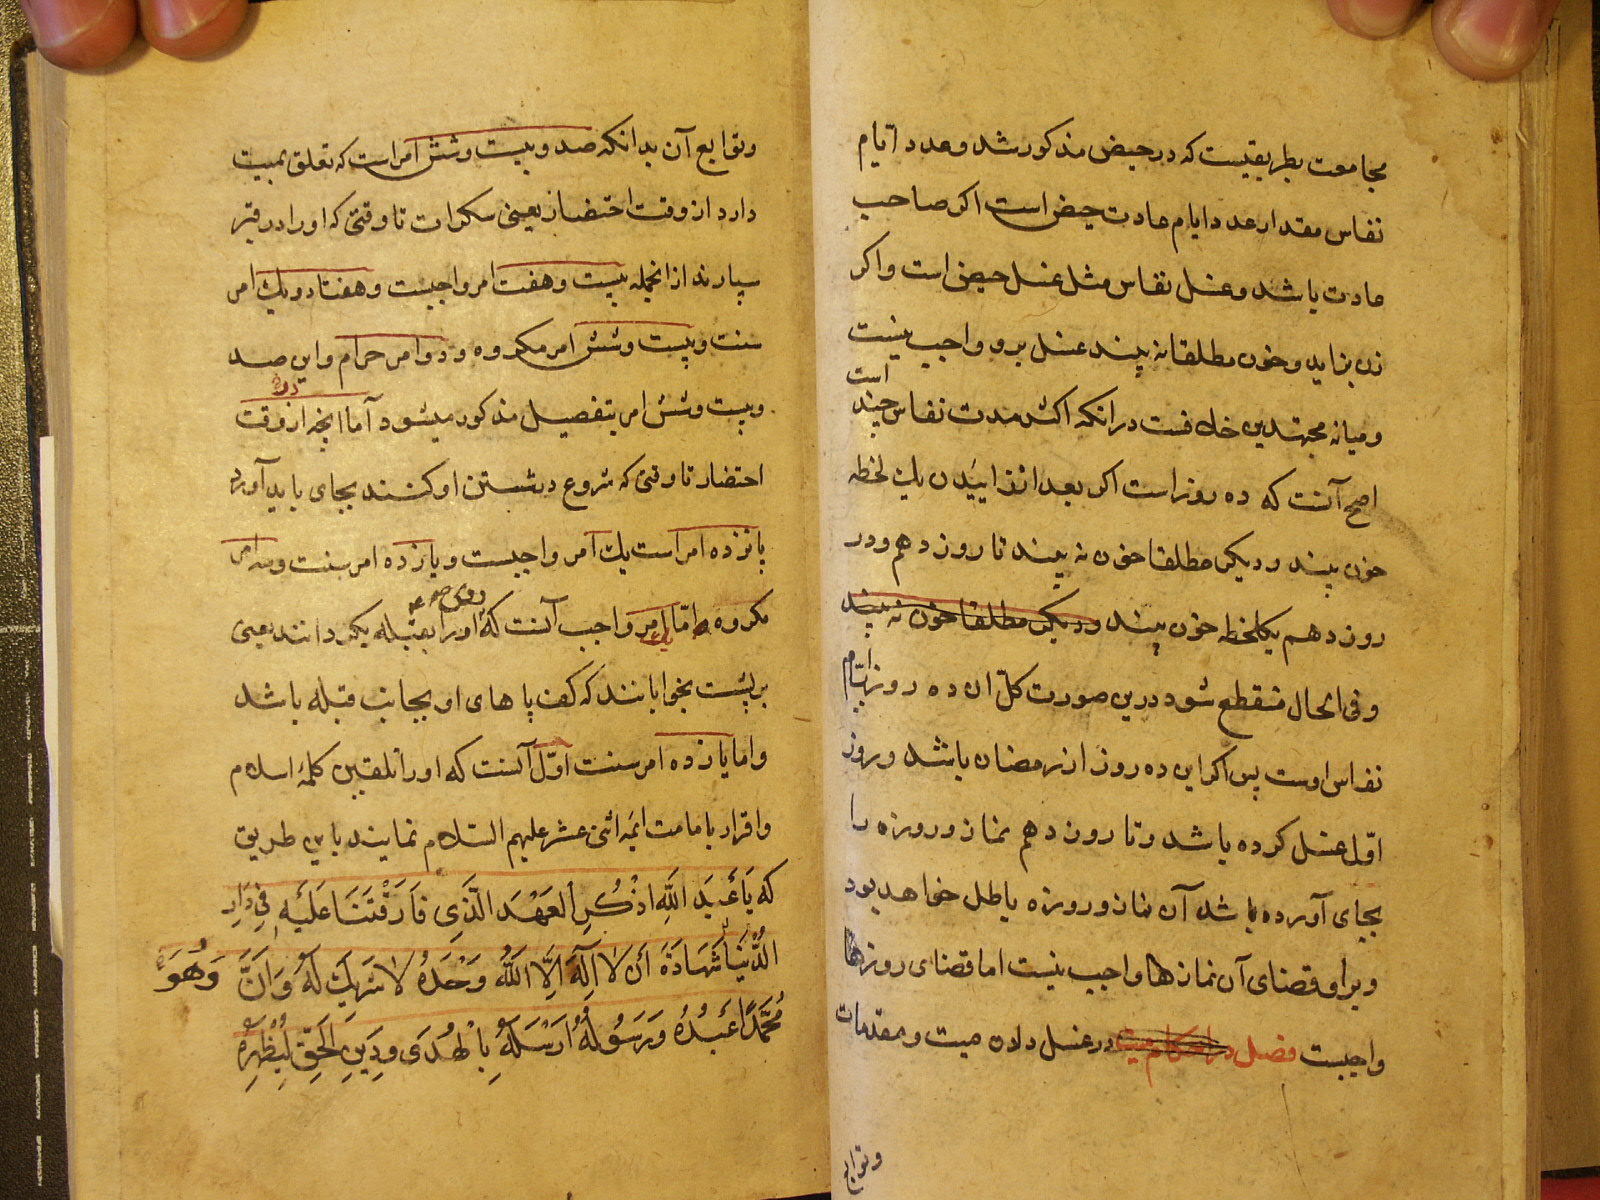 مجامعت بطریقیست که در حیض مذکور شد وعدد ایام
نفاس مقدار عدد ایام عادت حیض است اکر صاحب
عادت باشد وغسل نفاس مثل غسل حیض است واکر
زن بزاید وخون مطلقا نه بیند غسل برو واجب نیست
ومیانه مجتهدین خلافست در انکه اکثر مدت نفاس چند است
اصح آنست که ده روز است اکر بعد از زاییدن یک لحظه
خون بیند ودیکر مطلقا خون نه بیند تا روز دهم ودر
روز دهم یکلحظه خون بیند ودیکر مطلقا خون نه بیند
وفی الحال منقطع شود درین صورت کلّ ان ده روز ایّام
نفاس اوست پس اکر این ده روز از رمضان باشد وروز
اوّل غسل کرده باشد وتا روز دهم نماز وروزه را
بجای آورده باشد آن نماز وروزه باطل خواهد بود
وبر او قضای آن نمازها واجب نیست اما قضای روزها
واجبست فصل در احکام میت در غسل دادن میت ومقدمات
وتوابع
وتوابع آن بدانکه صد وبیست وشش امر است که تعلق بمیت
دارد از وقت احتضار یعنی سکرات تا وقتی که او را در قبر
سپارند از انجمله بیست وهفت امر واجبست وهفتاد ویک امر
سنت وبیست وشش امر مکروه ودو امر حرام واین صد
وبیست وشش امر بتفصیل مذکور میشود آما انچه از وقت
احتضار تا وقتی که شروع در شستن او کنند بجای باید آورد
پانزده امر است یک امر واجبست ویازده امر سنت وسه امر
مکروه امّا امر واجب آنست که او را روی بقبله یکردانند یعنی
بر پشت بخوابانند که کف پاهای او بجانب قبله باشد
واما یازده امر سنت اوّل آنست که او را تلقین کلمهٔ اسلام
واقرار بامامت ایمه اثنی عشر علیهم السّلام نمایند باین طریق
که یَا عَبدَ اللَّهِ اذْکُرِ العَهْدَ الَّذِی فَارَقْتَنَا عَلَیْهِ فِی دَارِ
الدُّنْیَا شَهَادَةَ اَن لا اِلٰهَ اِلَّا اللَّهُ وَحْدَهُ لا شَرِیکَ لَهُ وَاَنَّ
مُحَمَّدًا عَبْدُهُ وَرَسُولُهُ اَرْسَلَهُ بِالْهُدَی وَدِینِ الحَقِّ لِیُظْهِرَهُ